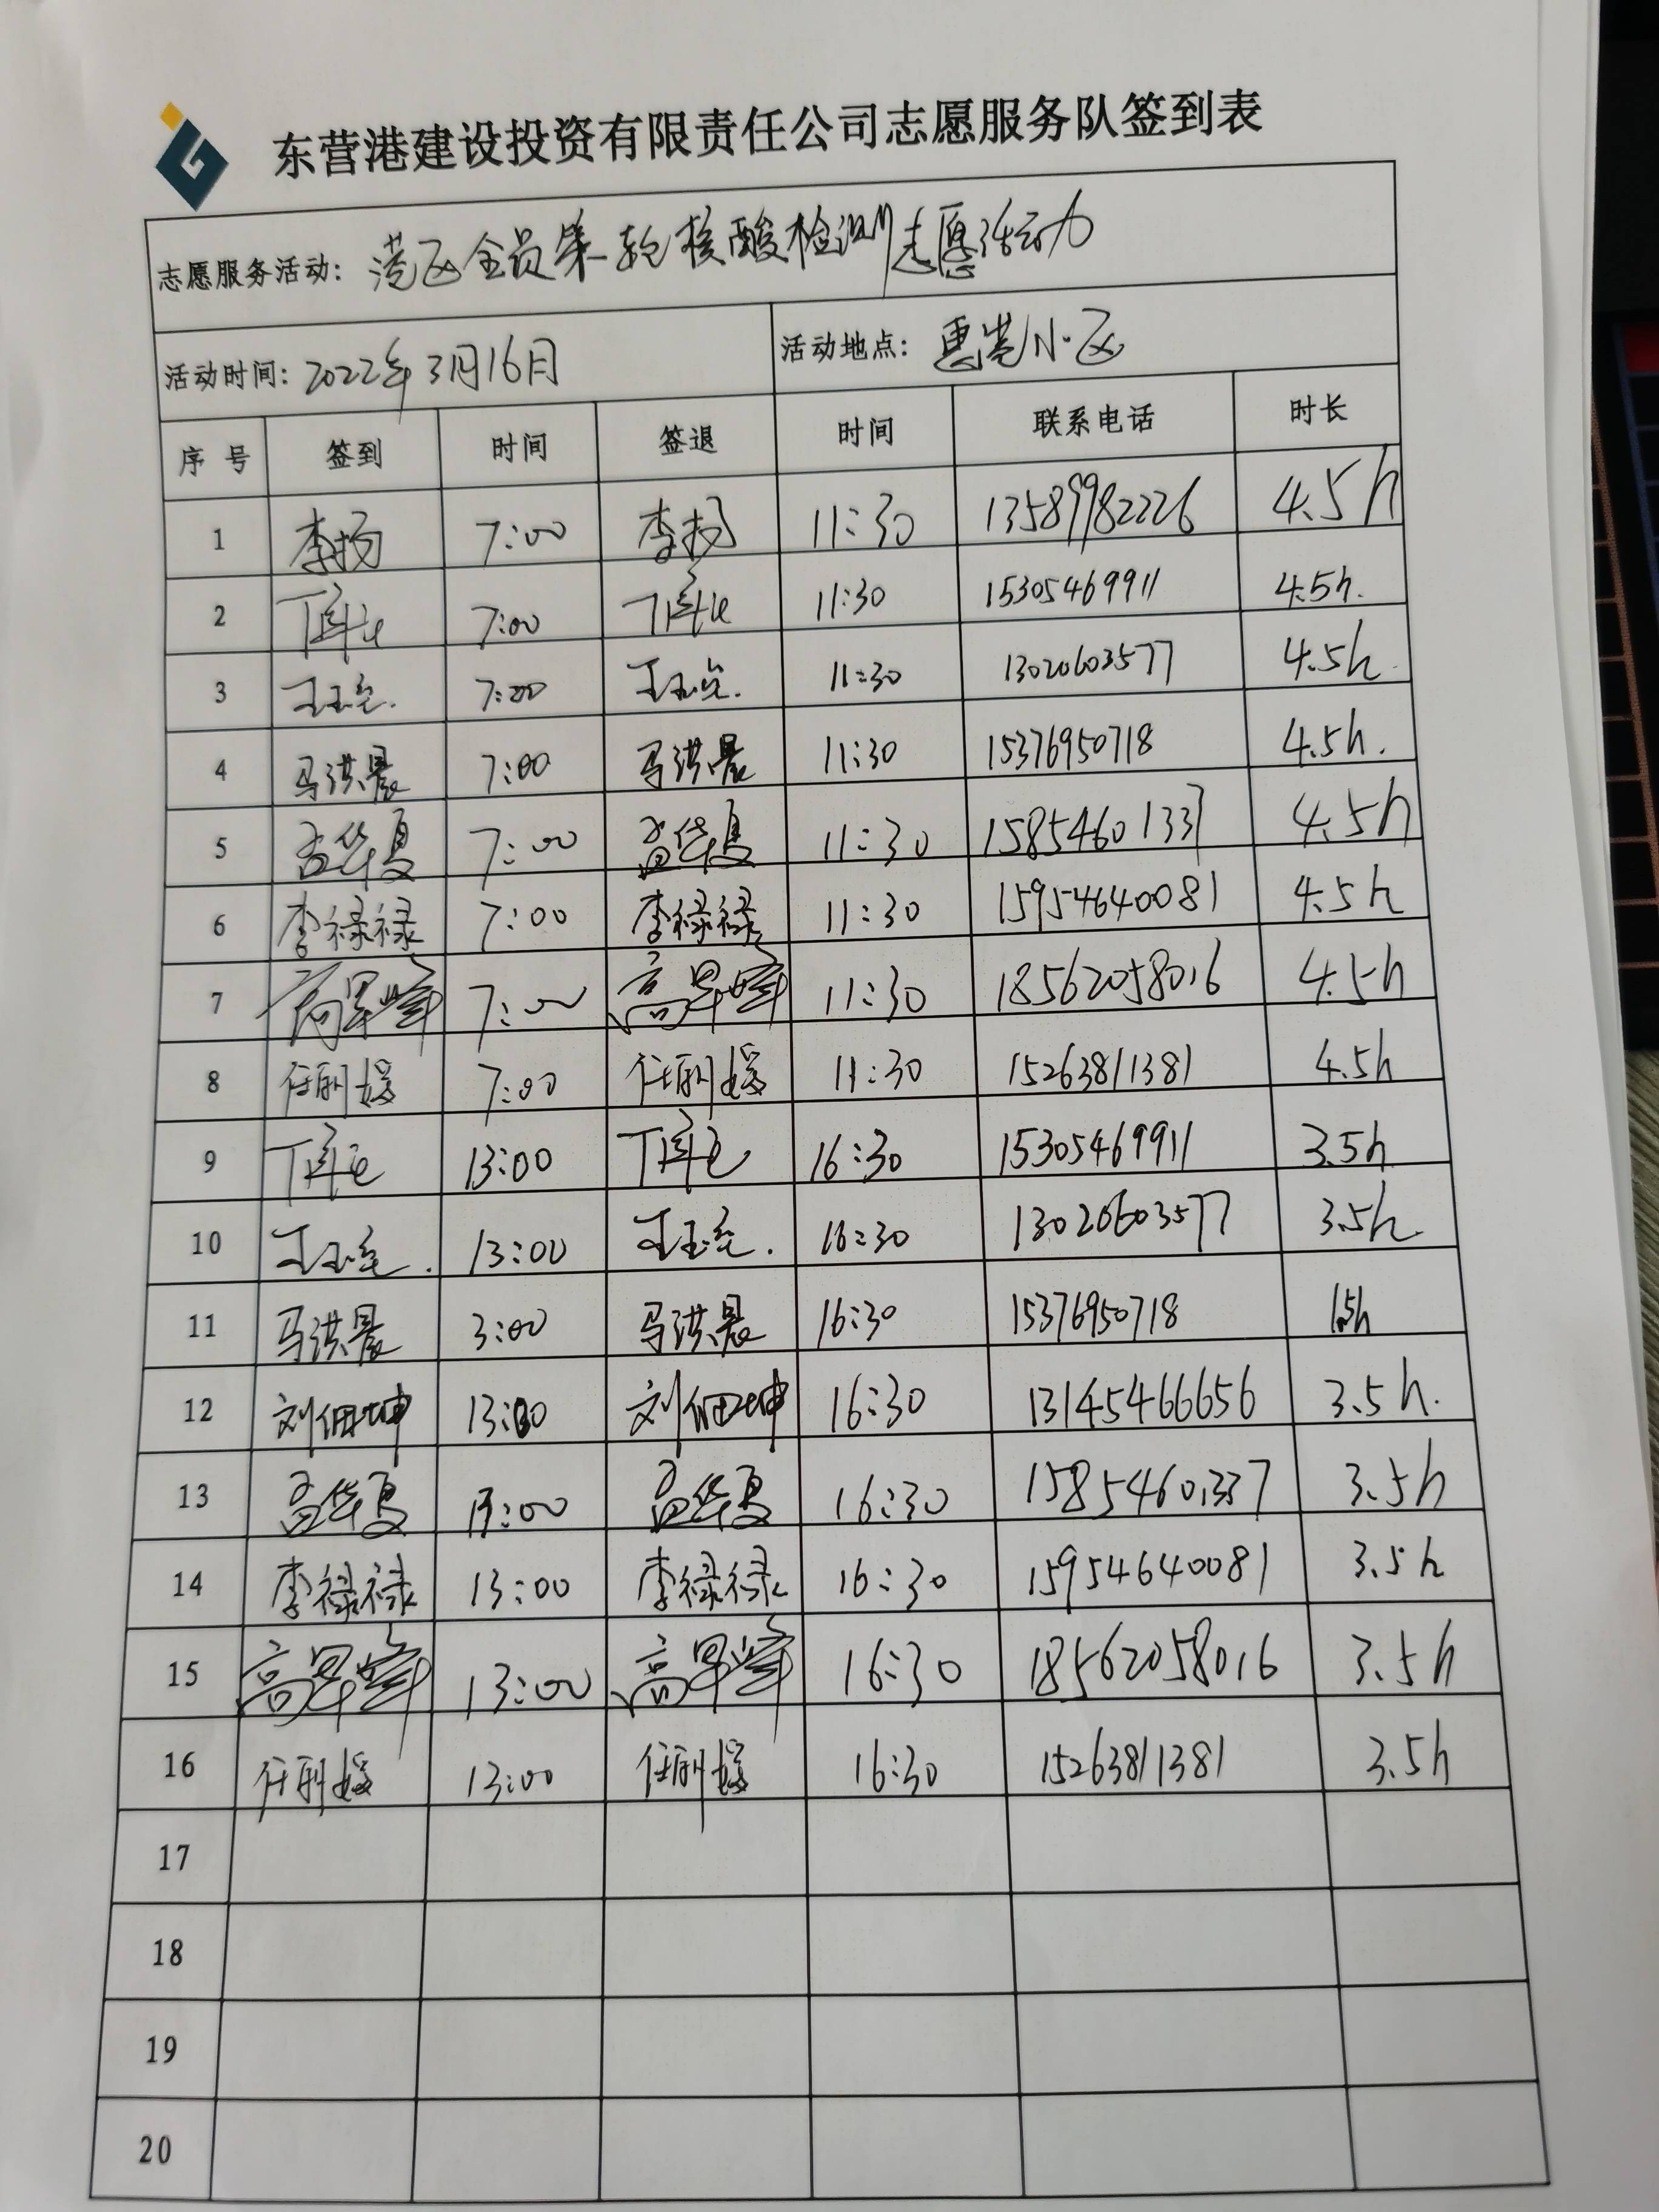 东营港建设投资有限责任公司志愿服务队签到表
志愿服务活动：港区全员第一轮核酸检测志愿活动
活动时间：2022年3月16日 活动地点：惠港小区
序号 签到 时间 签退 时间 联系电话 时长
1 李扬 7:00 李扬 11:30 13589982226 4.5h
2 7:00 11:30 15305469911 4.5h.
3 7:00 11:30 13020603577 4.5h.
4 马洪晨 7:00 马洪晨 11:30 15376950718 4.5h.
5 孟华夏 7:00 孟华夏 11:30 15854601337 4.5h
6 李禄禄 7:00 李禄禄 11:30 15954640081 4.5h
7 高军峰 7:00 高军峰 11:30 18562058016 4.5h
8 7:00 11:30 15263811381 4.5h
9 13:00 16:30 15305469911 3.5h
10 13:00 16:30 13020603577 3.5h.
11 马洪晨 3:00 马洪晨 16:30 15376950718 1.5h
12 刘佃坤 13:00 刘佃坤 16:30 13145466656 3.5h.
13 孟华夏 13:00 孟华夏 16:30 15854601337 3.5h
14 李禄禄 13:00 李禄禄 16:30 15954640081 3.5h
15 高军峰 13:00 高军峰 16:30 18562058016 3.5h
16 13:00 16:30 15263811381 3.5h
17
18
19
20